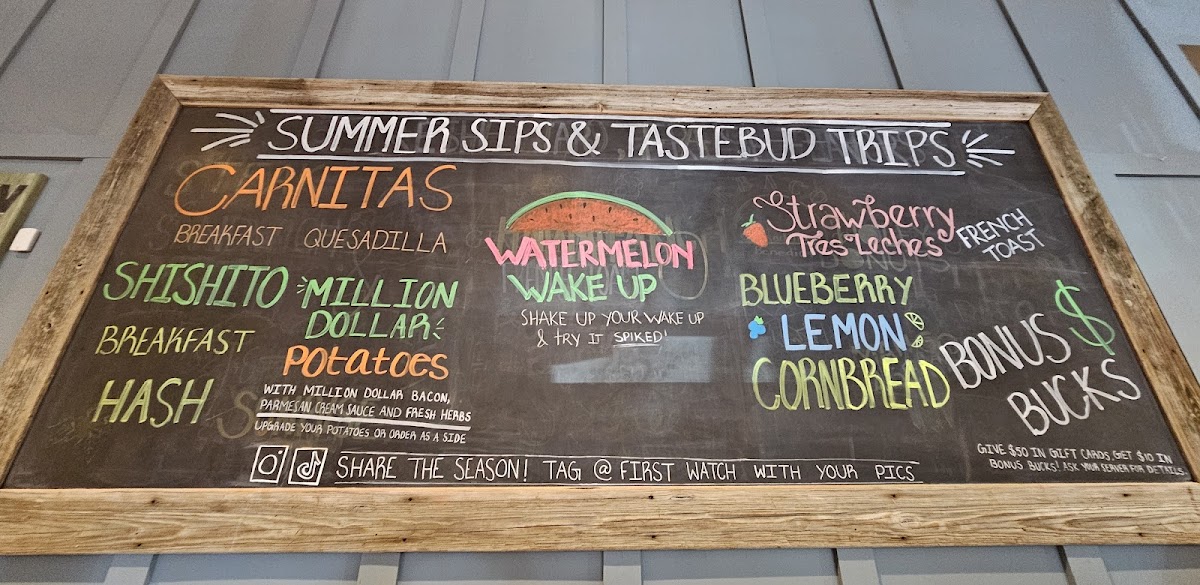 SUMMER SIPS & TASTEBUD TRIPS
CARNITAS
BREAKFAST QUESADILLA
SHISHITO
BREAKFAST
HASH
MILLION
DOLLAR
POTATOES
WITH MILLION DOLLAR BACON,
PARMESAN CREAM SAUCE AND FRESH HERBS
UPGRADE YOUR POTATOES OR ORDER AS A SIDE
WATERMELON
WAKE UP
SHAKE UP YOUR WAKE UP
& TRY IT SPIKED!
Strawberry
Tres Leches
FRENCH
TOAST
BLUEBERRY
LEMON
CORNBREAD
$
BONUS
BUCKS
GIVE $50 IN GIFT CARDS, GET $10 IN
BONUS BUCKS! ASK YOUR SERVER FOR DETAILS
SHARE THE SEASON! TAG @ FIRST WATCH WITH YOUR PICS